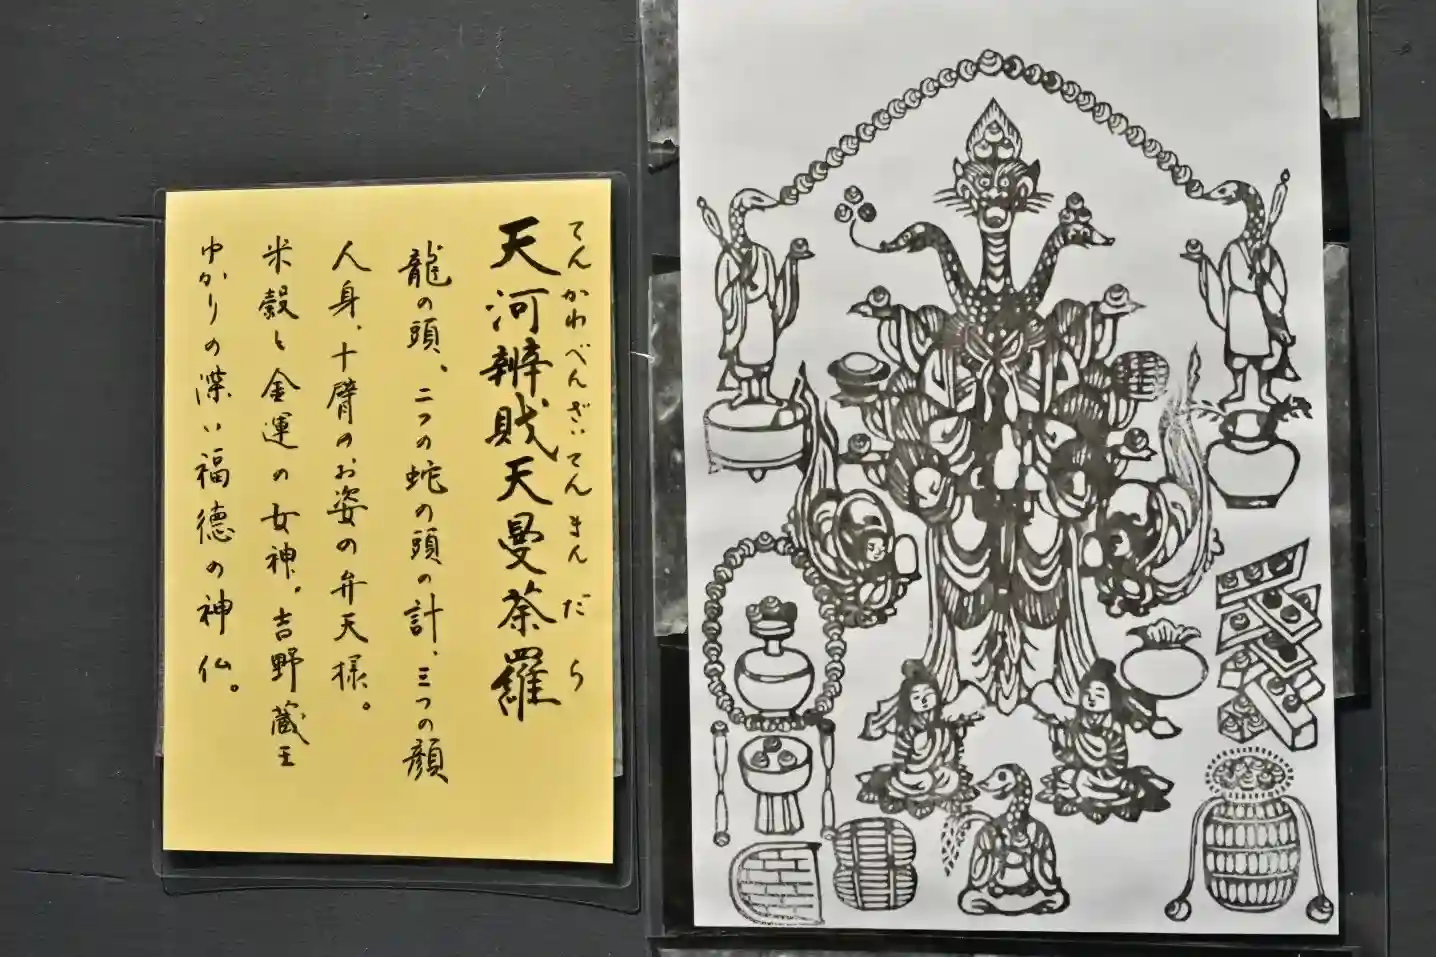 天河辨財天曼荼羅
てんかわべんざいてんまんだら
龍の頭、二つの蛇の頭の計、三つの顔
人身、十臂のお姿の弁天様。
米穀と金運の女神。吉野蔵王
ゆかりの深い福徳の神仏。